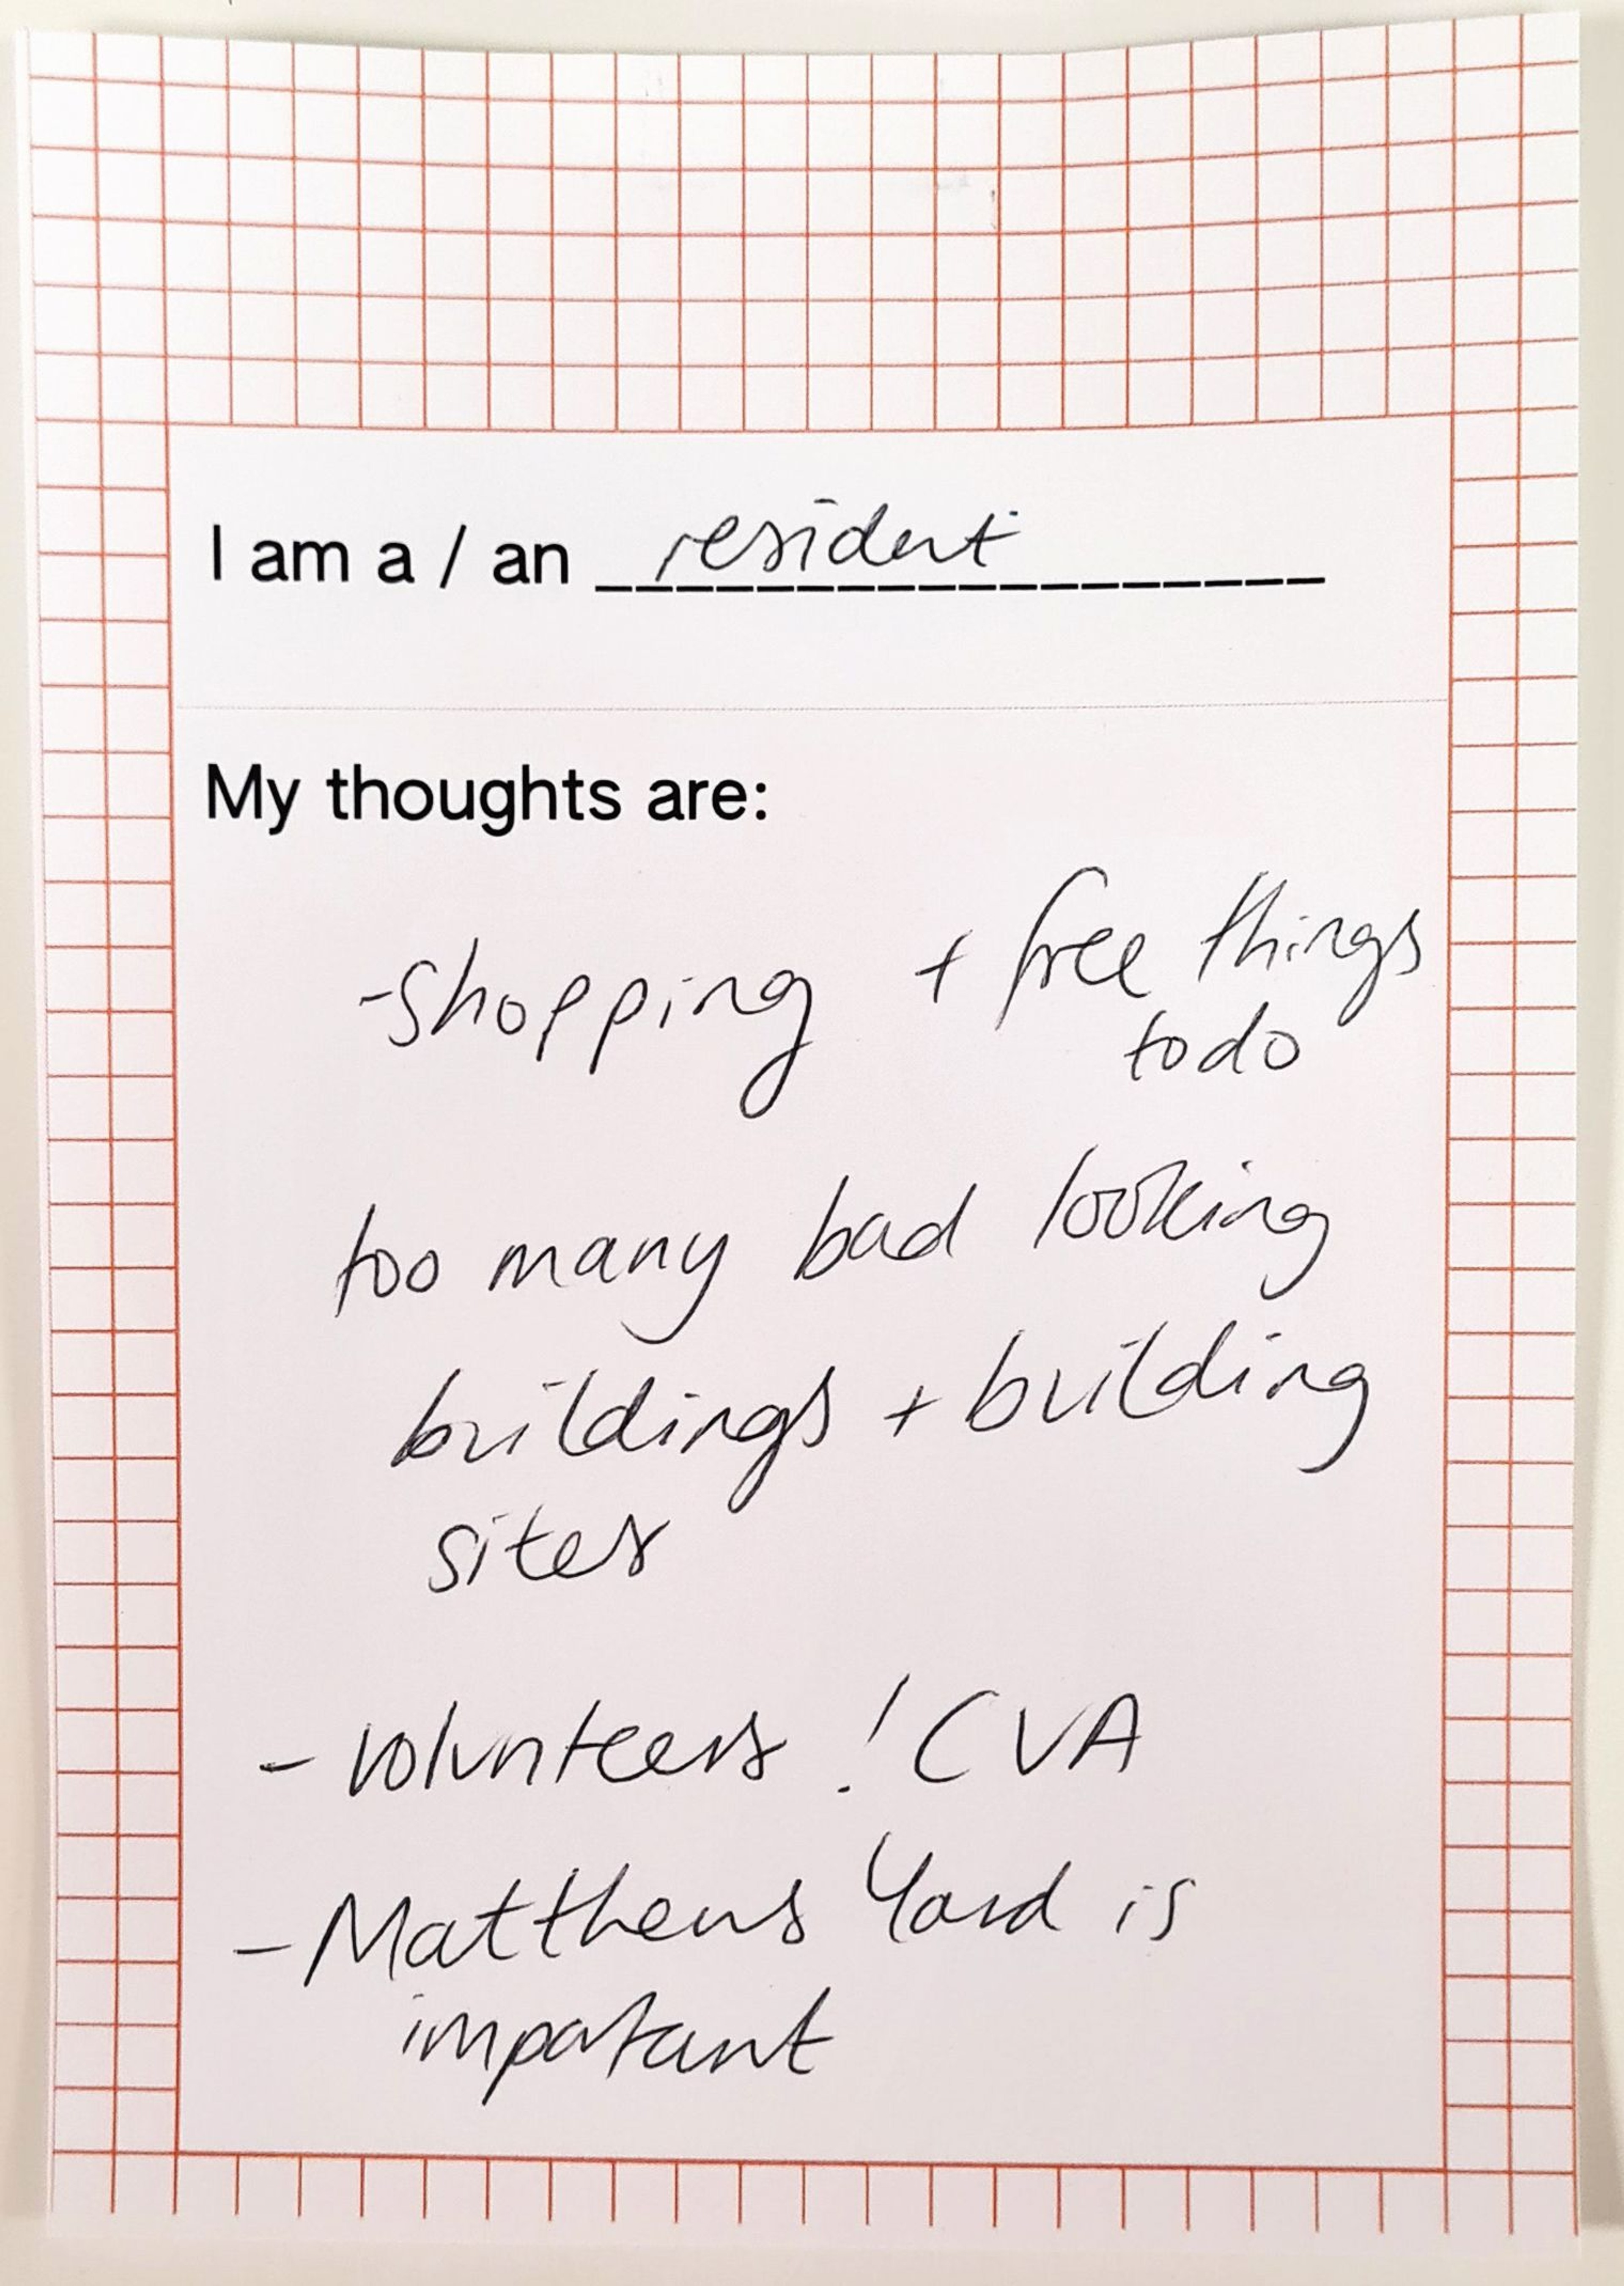 I am a / an resident
My thoughts are:
-shopping + free things
to do
too many bad looking
buildings + building
sites
- volunteers ! CVA
- Matthews Yard is
important